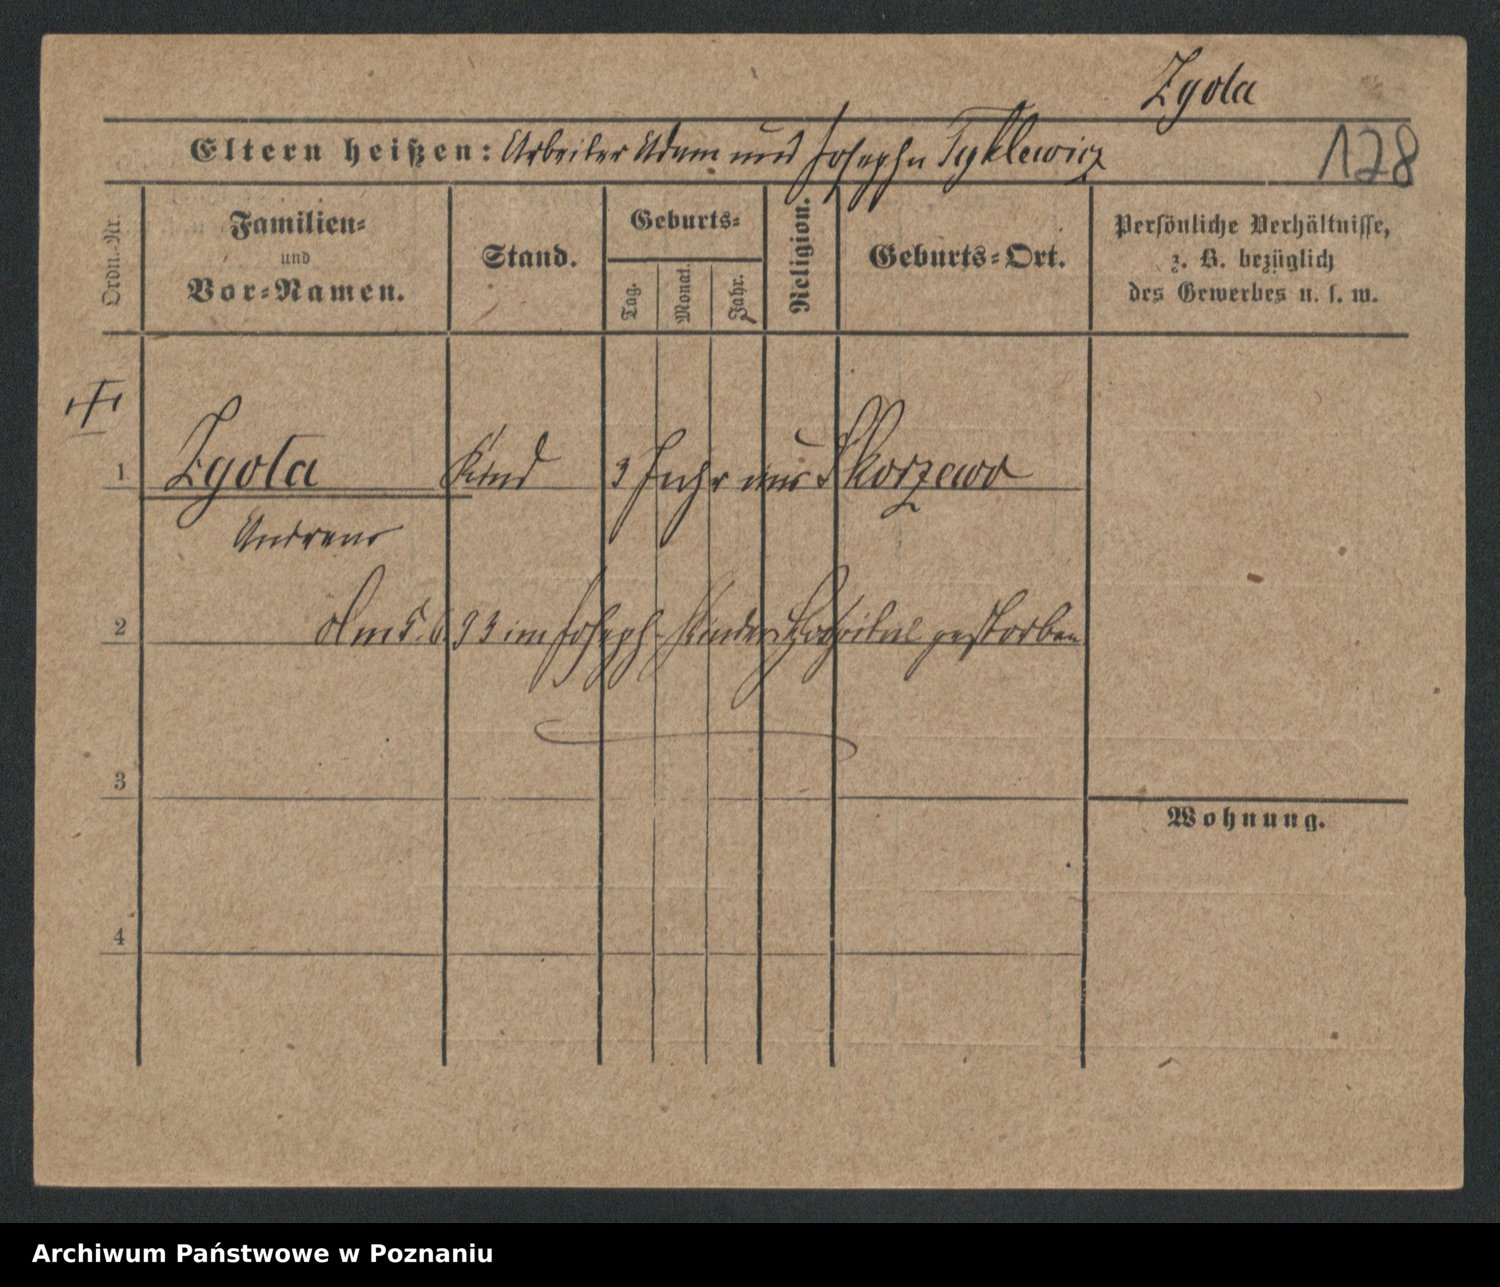 Zgola
Eltern heißen: Arbeiter Adam und Josepha Tyklewicz
128
Ordn.-Nr.
Familien-
und
Vor-Namen.
Stand.
Geburts-
Tag.
Monat.
Jahr.
Religion.
Geburts-Ort.
Persönliche Verhältnisse,
z. B. bezüglich
des Gewerbes u. s. w.
1 Zgola Kind 3 Jahr aus Skorzewo
Andreas
2 Am 5. 6 93 im Joseph-Kinder-Hospital gestorben
3
Wohnung.
4
Archiwum Państwowe w Poznaniu